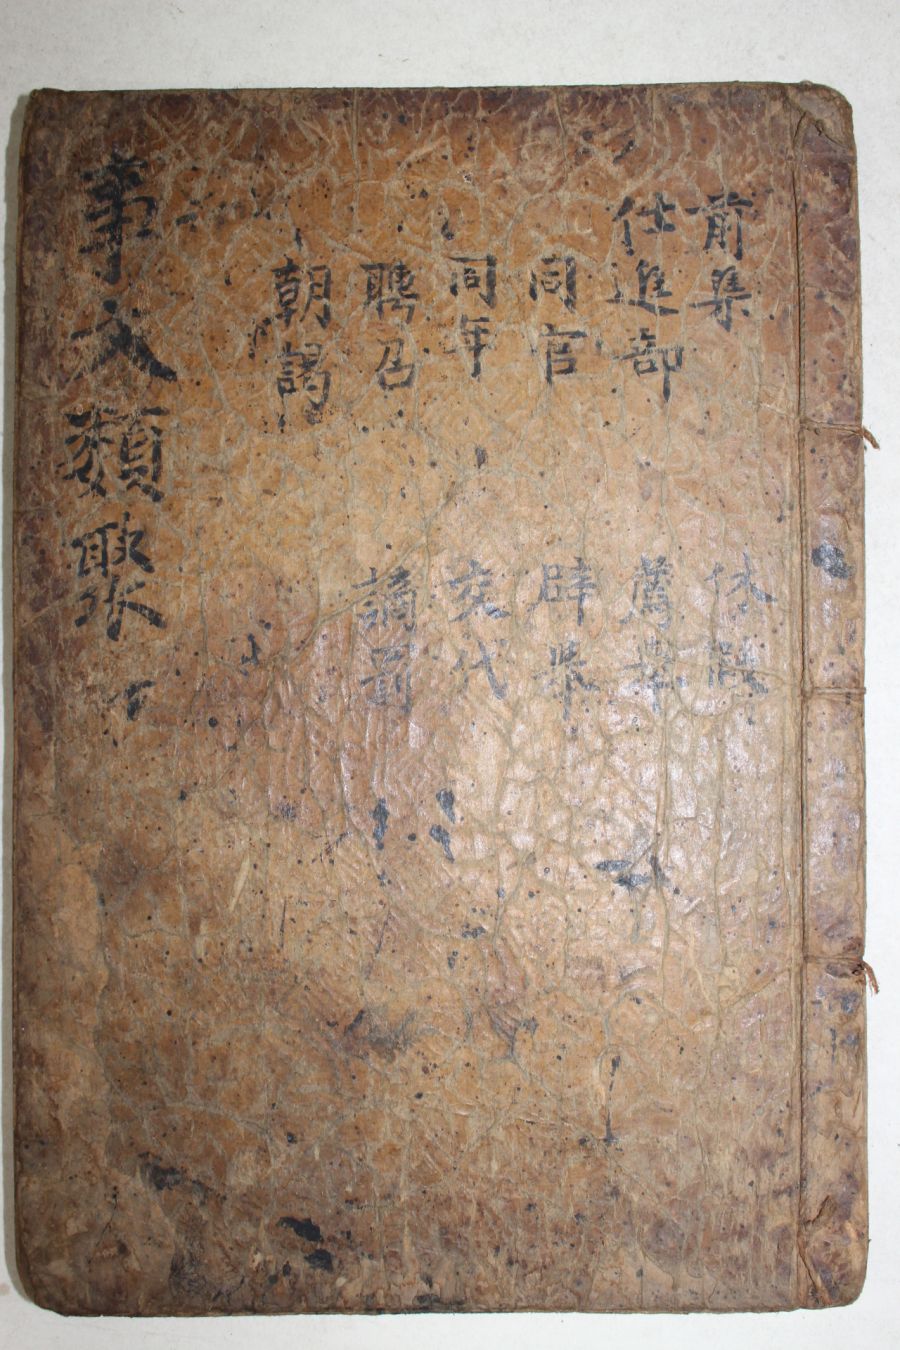 前集
仕進部
同官
同年
聘召
朝謁
休致
薦擧
辟擧
交代
謫罰
事文類聚 下